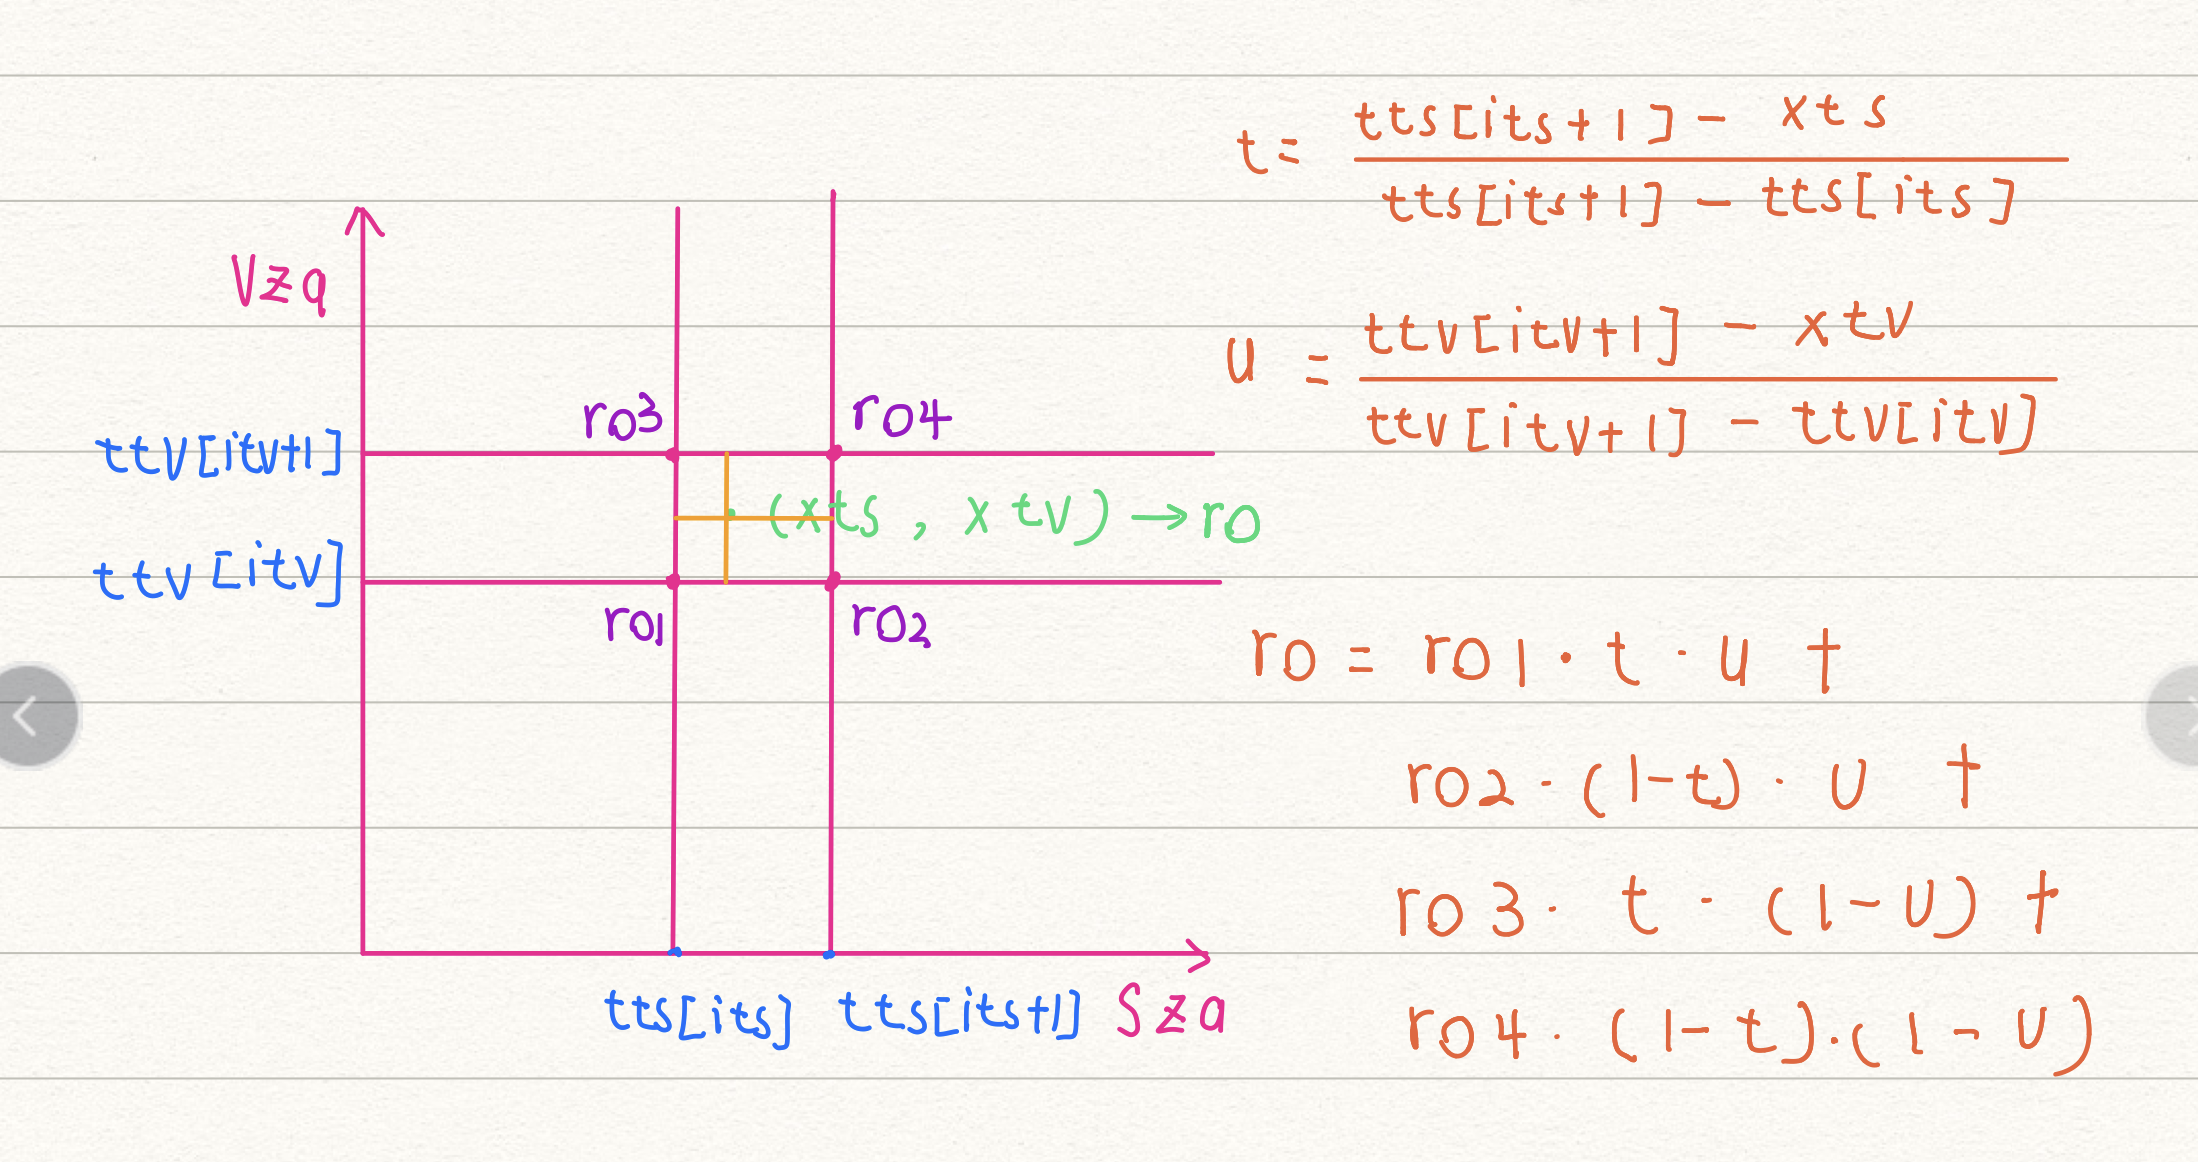 Vza
ro3
ro4
ttv[itv+1]
(xts, xtv) → ro
ttv[itv]
ro1
ro2
tts[its]
tts[its+1]
Sza
t = (tts[its+1] - xts) / (tts[its+1] - tts[its])
u = (ttv[itv+1] - xtv) / (ttv[itv+1] - ttv[itv])
ro = ro1 · t · u +
ro2 · (1-t) · u +
ro3 · t · (1-u) +
ro4 · (1-t) · (1-u)